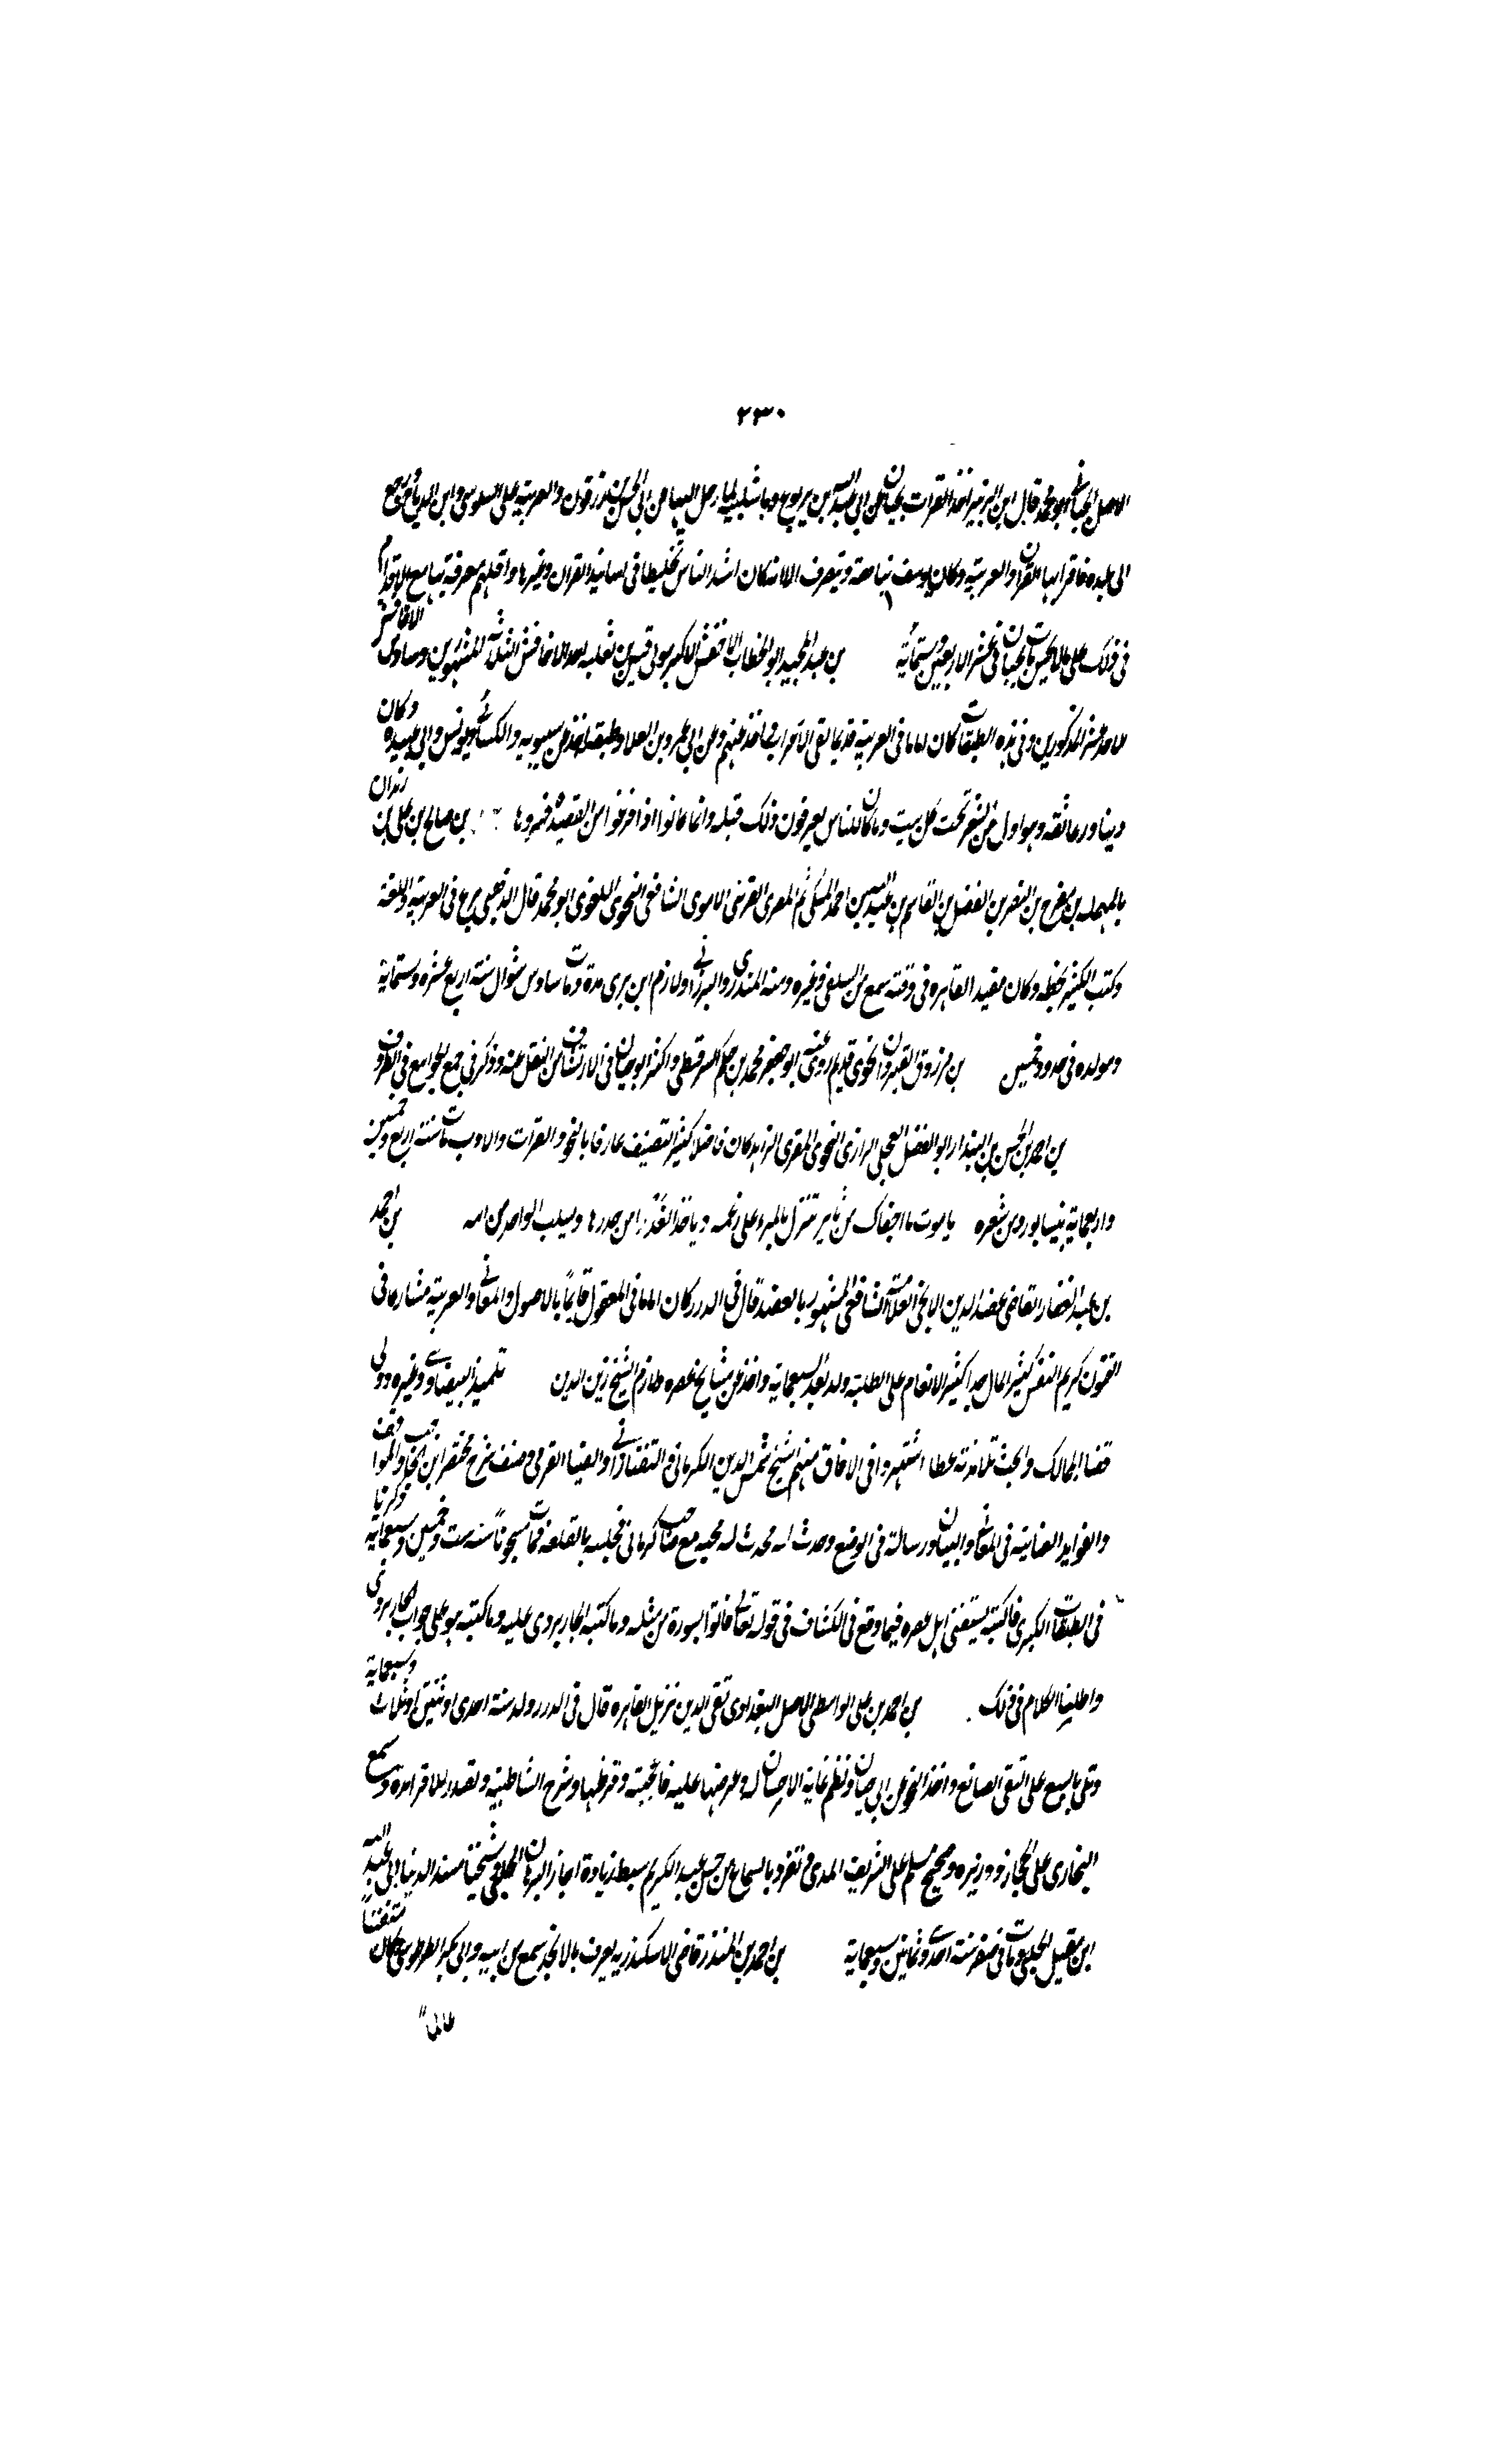 ٢٣٠
الاصل الجياني ابو محمد قال ابن الزبير اخذ القراات بجيان عن ابي عبد الله بن يربوع وباشبيلية لما رحل اليها من ابي الحسن بن زرقون والعربية على السلوبي وابن الدباج ورجع
الى بلده فاقرا بها القران والعربية وكان يوسف بنباهة وتصرف الا انه كان اشد الناس تخليطا في اسانيد القران وغيرها واقلهم معرفة بها مع الاقدام
في ذلك على مالا يحسن مات بجيان في عشر الاربعين وستمائة بن عبد المجيد ابو الخطاب الاخفش الاكبر مولى قيس بن ثعلبة احد الاخافش الثلثة المشهورين وسادس الاخافش
الاحد عشر المذكورين في هذه الطبقات كان اماما في العربية قديما لقي الاعراب واخذ عنهم وعن ابي عمرو بن العلا وطبقته اخذ عن سيبويه والكسائي ويونس وابي عبيده وكان
دينا ورعا ثقة وهو اول من فسر الشعر تحت كل بيت وما كان الناس يعرفون ذلك قبله وانما كانوا اذا فرغوا من القصيدة فسروها بن صالح بن علي بن زيدان
بالمهملة بن مفرح بن النضر بن الفضل بن القاسم بن عبد الله بن احمد المسكي ثم المصري القرشي الاموي الشافعي النحوي اللغوي ابو محمد قال الذهبي برع في العربية واللغة
وكتب الكثير بخطه وكان مفيد القاهره في وقته سمع من السلفي وغيره ومنه المنذري والبرزالي ولازم ابن بري مدة ومات سادس شوال سنة اربع عشره وستماية
ومولده في حدود خمسين بن مرزوق القيرواني النحوي قديم روى عنه ابو جعفر محمد بن حكم السرقسطي واكثر ابو حيان في الارتشاف من النقل عنه وذكر في جمع الجوامع في الظروف
بن احمد بن الحسن بن البندار ابو الفضل العجلي الرازي النحوي المقري الزاهد كان فاضلا كثير التصنيف عارفا بالنحو والقراات والادب مات سنة اربع وخمسين
واربعماية بنيسابور ومن شعره يا موت ما اجفاك من زاير تنزل بالمرء على رغمه وتاخذ العذراء من خدرها وتسلب الواحد من امه بن احمد
بن عبد الغفار القاضي عضد الدين الايجي العلامة الشافعي المشهور بالعضد قال في الدرر كان اماما في المعقول قايما بالاصول والمعاني والعربية مشاركا في
الفنون كريم النفس كثير المال جدا كثير الانعام على الطلبة ولد بعد السبعماية واخذ عن مشايخ عصره ولازم الشيخ زين الدين تلميذ البيضاوي وغيره وولي
قضا الممالك وانجب تلامذته عظاما اشتهروا في الافاق منهم الشيخ شمس الدين الكرماني والتفتازاني والضيا القرمي وصنف شرح مختصر ابن الحاجب والمواقف
والفوايد الغياثية في المعاني والبيان ورسالة في الوضع وحدث له محنة مع صاحب كرمان فحبسه بالقلعة فمات مسجونا سنة ست وخمسين وسبعماية ذكرنا
في الطبقات الكبرى ما كتبه يستفتي اهل عصره فيما وقع في الكشاف في قوله تعالى فاتوا بسورة من مثله وما كتبه الجاربردي عليه وما كتبه هو على جواب الجاربردي
واطلنا الكلام في ذلك بن احمد بن علي الواسطي الاصل البغدادي تقي الدين نزيل القاهره قال في الدرر ولد سنة احدى او ثنتين او ثلاث وسبعماية
وتلى بالسبع على التقي الصائغ واخذ النحو عن ابي حيان ونظم غاية الاحسان له وعرضها عليه فاعجبته وقرظها وشرح الشاطبية وتصدر للاقراء مدة وسمع
البخاري على الحجار ووزيره وصحيح مسلم على الشريف الموسوي تفرد بالسماع من حسن بن عبد الكريم سبط زيادة اجاز البرهان الحلبي وشيختنا مسند الدنيا ابي عبد الله
ابن مقبل الحلبي ومات في صفر سنة احدى وثمانين وسبعماية بن احمد بن المنذر قاضي الاسكندرية يعرف بالابجد سمع من ابيه وابي بكر الطرطوشي وكان متفننا
عالما